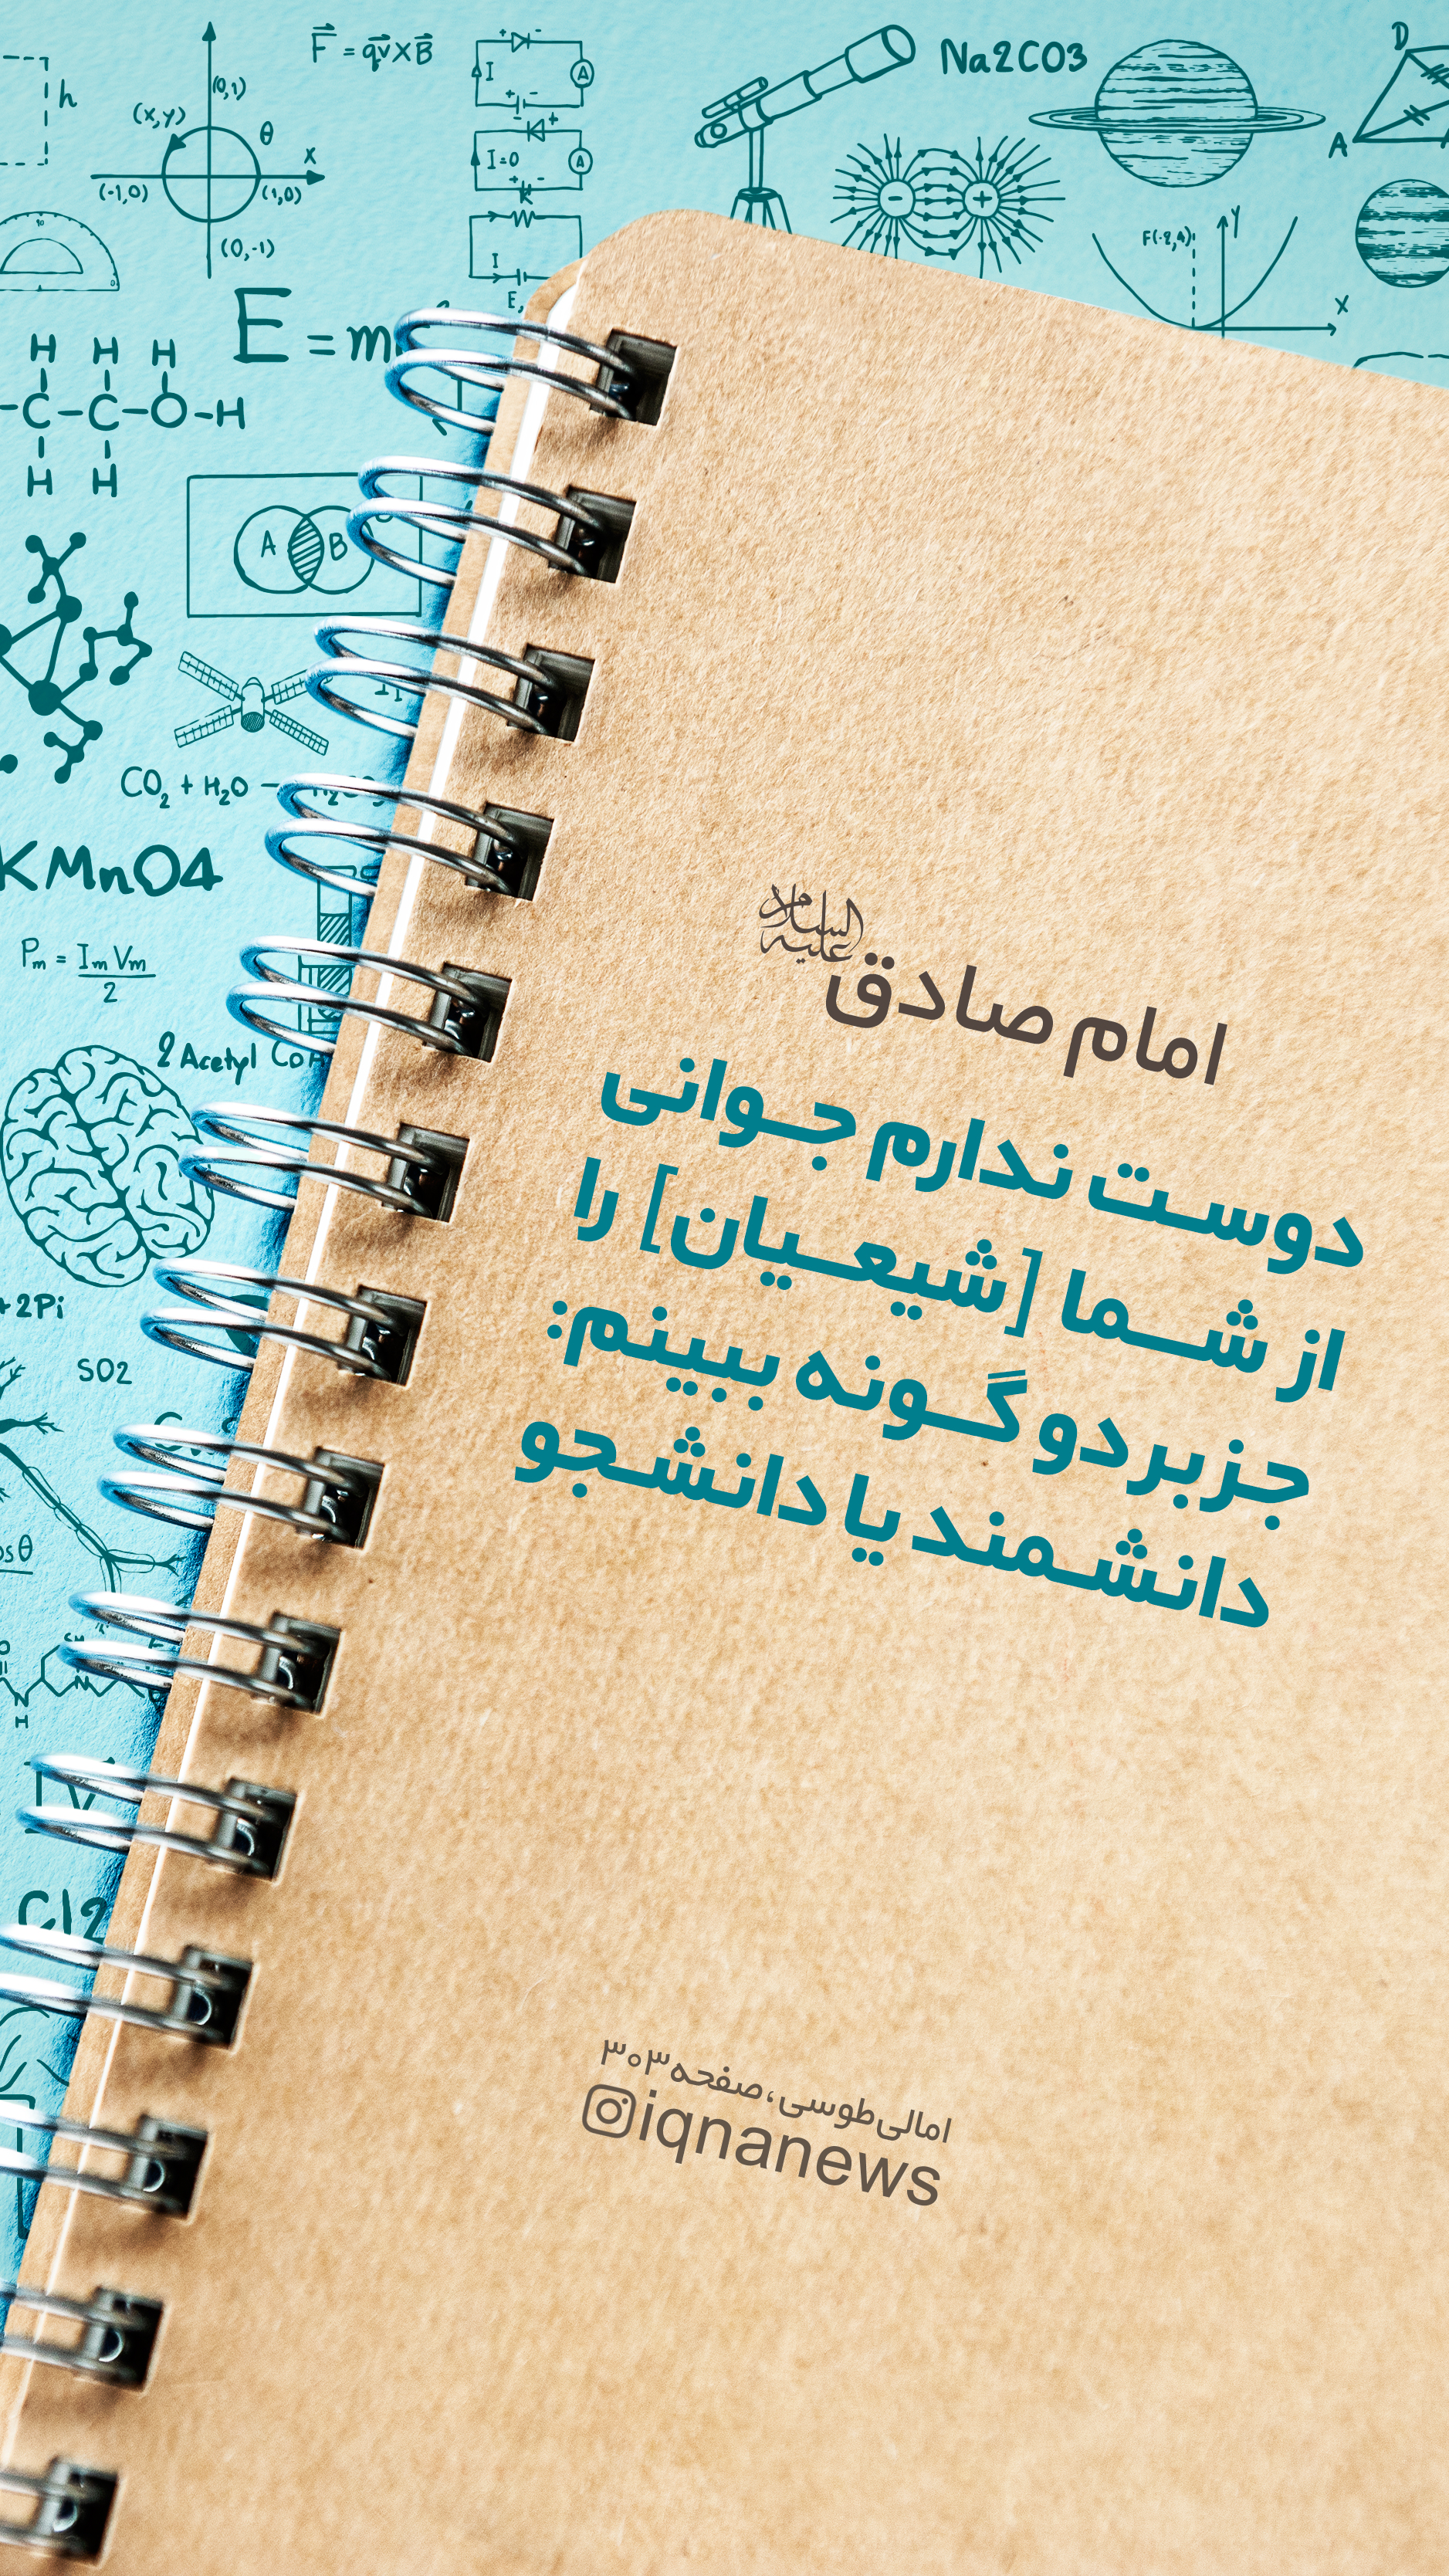 F = qv×B
I
A
I=0
A
I
Na2CO3
D
A
h
(0,1)
(x,y)
θ
x
(-1,0)
(1,0)
(0,-1)
F(-2,4)
y
x
E = m
H H H
C-C-O-H
H H
A B
CO2 + H2O
KMnO4
Pm = Im Vm
2
2 Acetyl CoA
+2Pi
SO2
Cl2
امام صادق علیه السلام
دوست ندارم جوانی
از شما [شیعیان] را
جز بر دو گونه ببینم:
دانشمند یا دانشجو
امالی طوسی، صفحه ۳۰۳
iqnanews